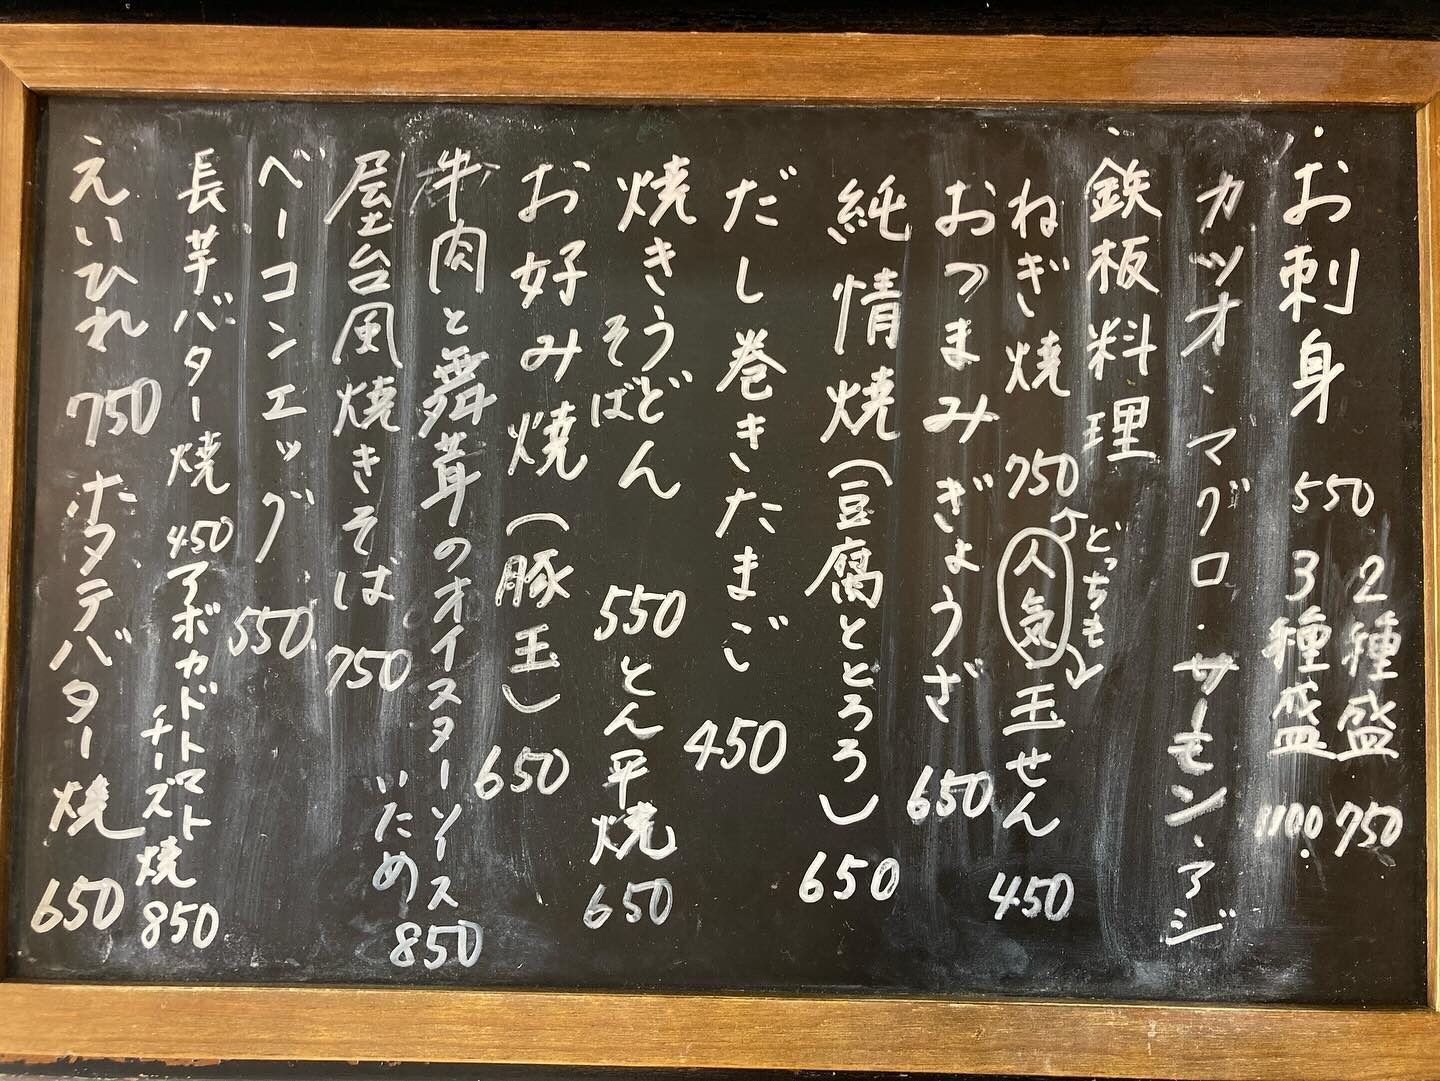 お刺身 550 2種盛 750
3種盛 1100
カツオ・マグロ・サーモン・アジ
鉄板料理
ねぎ焼 750 人気 玉せん 450
どっちも
おつまみぎょうざ 650
純情焼(豆腐ととろろ) 650
だし巻きたまご 450
焼きうどん 550 とん平焼 650
そば
お好み焼(豚玉) 650
牛肉と舞茸のオイスターソースいため 850
屋台風焼きそば 750
ベーコンエッグ 550
長芋バター焼 450 アボカドトマト焼 850
チーズ
えいひれ 750 ホタテバター焼 650